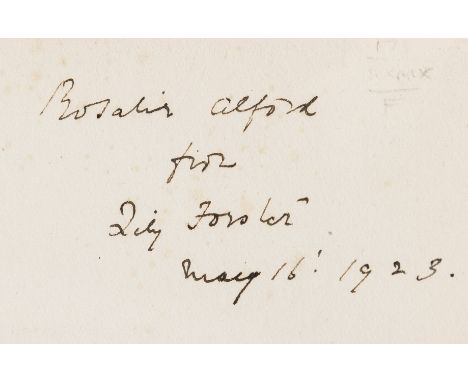 Rosalie Alford
from
Lily Forster
May 16' 1923.